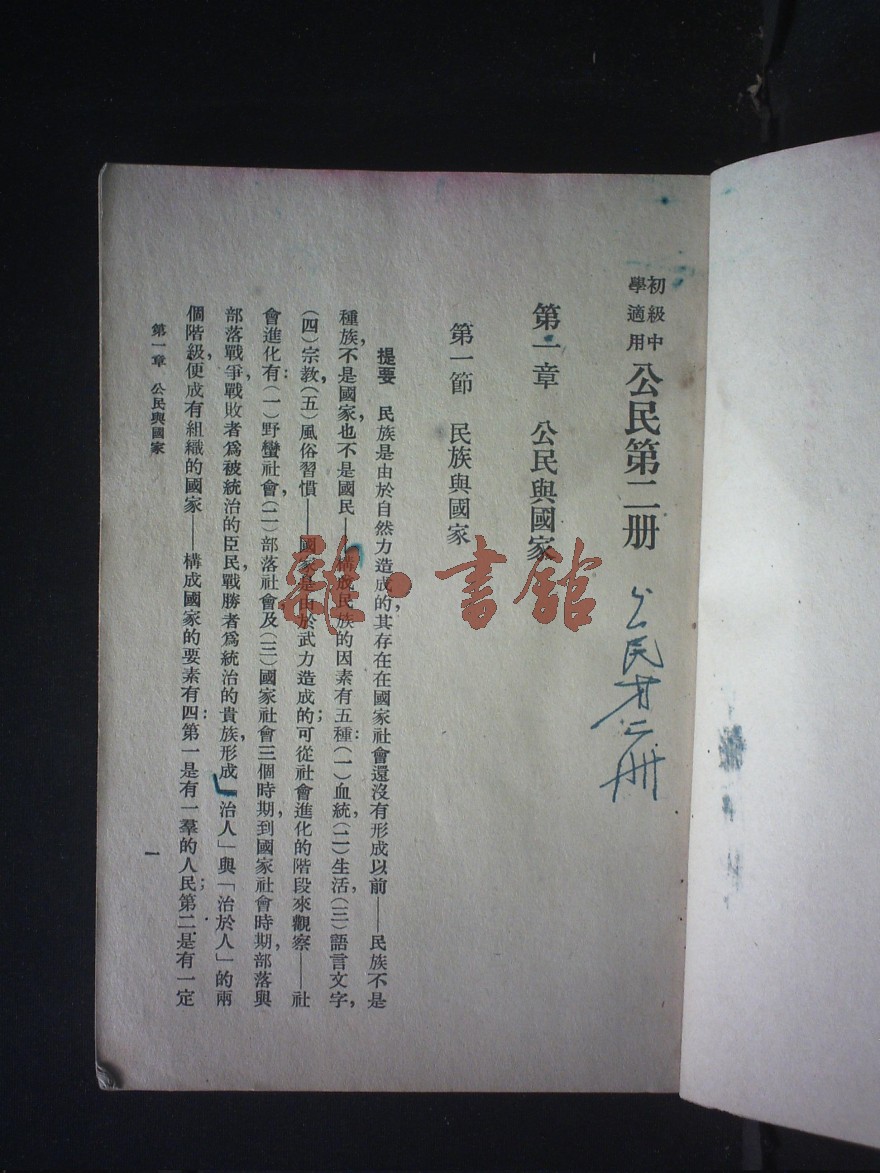 初級中學適用 公民第二册
公民才二册
第一章 公民與國家
第一節 民族與國家
提要 民族是由於自然力造成的,其存在在國家社會還沒有形成以前——民族不是
種族,不是國家,也不是國民——構成民族的因素有五種:(一)血統,(二)生活,(三)語言文字,
(四)宗教,(五)風俗習慣——國家是由於武力造成的;可從社會進化的階段來觀察——社
會進化有:(一)野蠻社會,(二)部落社會,及(三)國家社會三個時期,到國家社會時期,部落與
部落戰爭,戰敗者爲被統治的臣民,戰勝者爲統治的貴族,形成「治人」與「治於人」的兩
個階級,便成有組織的國家——構成國家的要素有四:第一是有一羣的人民;第二是有一定
第一章 公民與國家
一
雜·書館